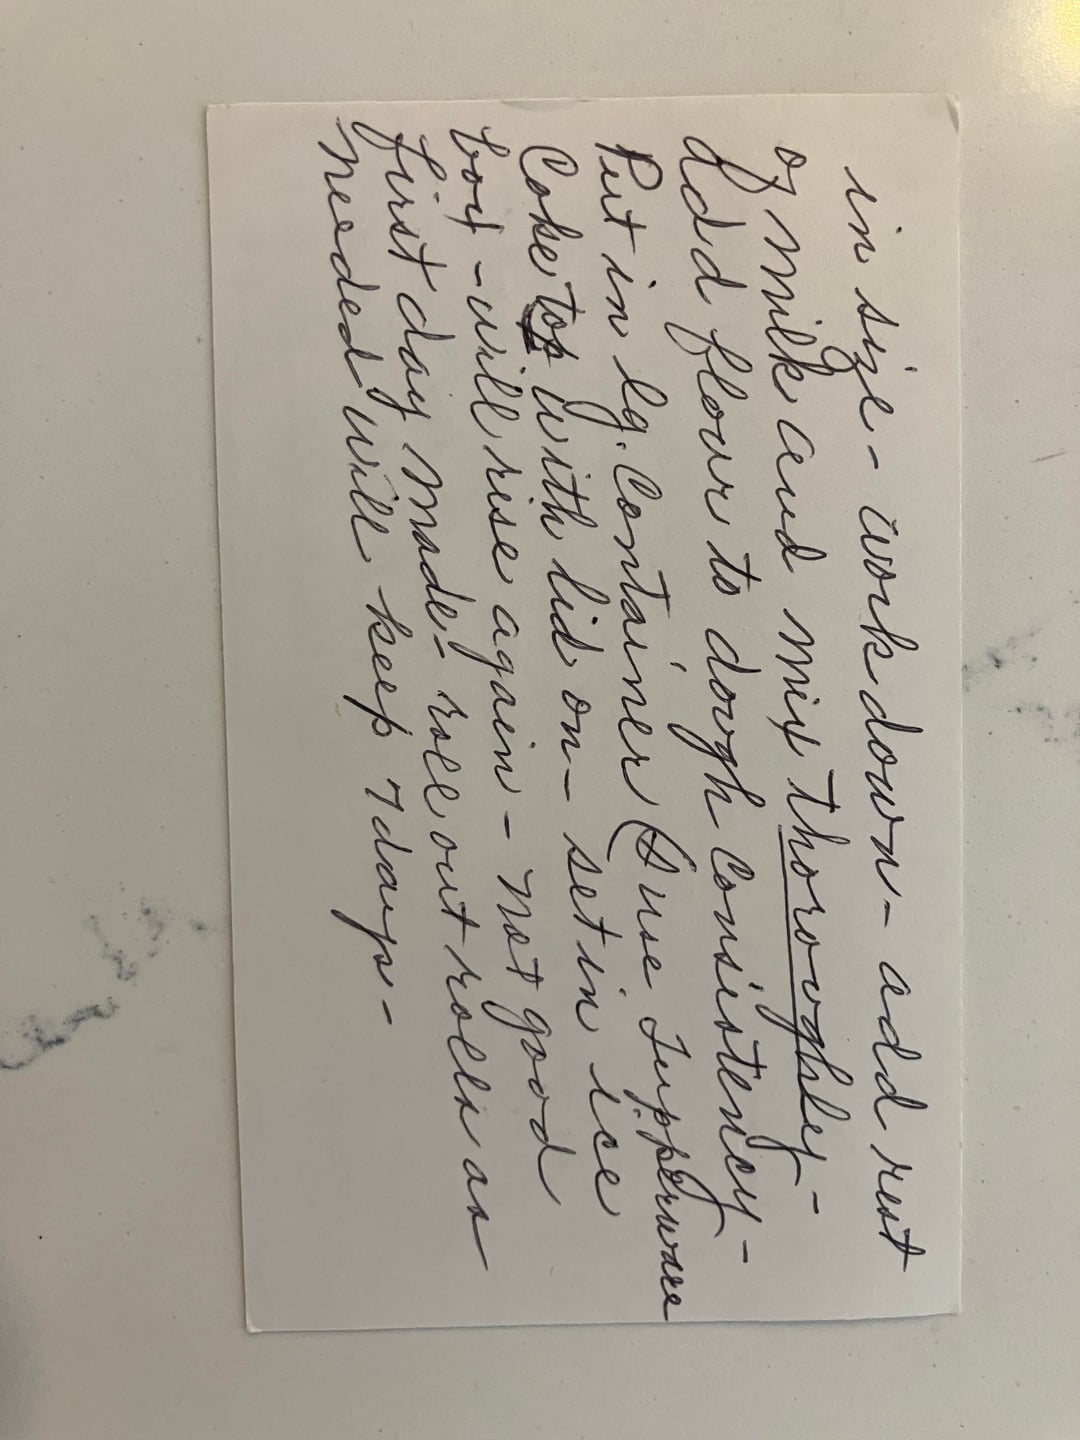 in size - work down - add rest
of milk and mix thoroughly -
Add flour to dough consistency -
Put in lg. Container (I use Tupperware
Cake top with lid on - set in ice
box - will rise again - not good
first day made - roll out rolls as
needed will keep 7 days -